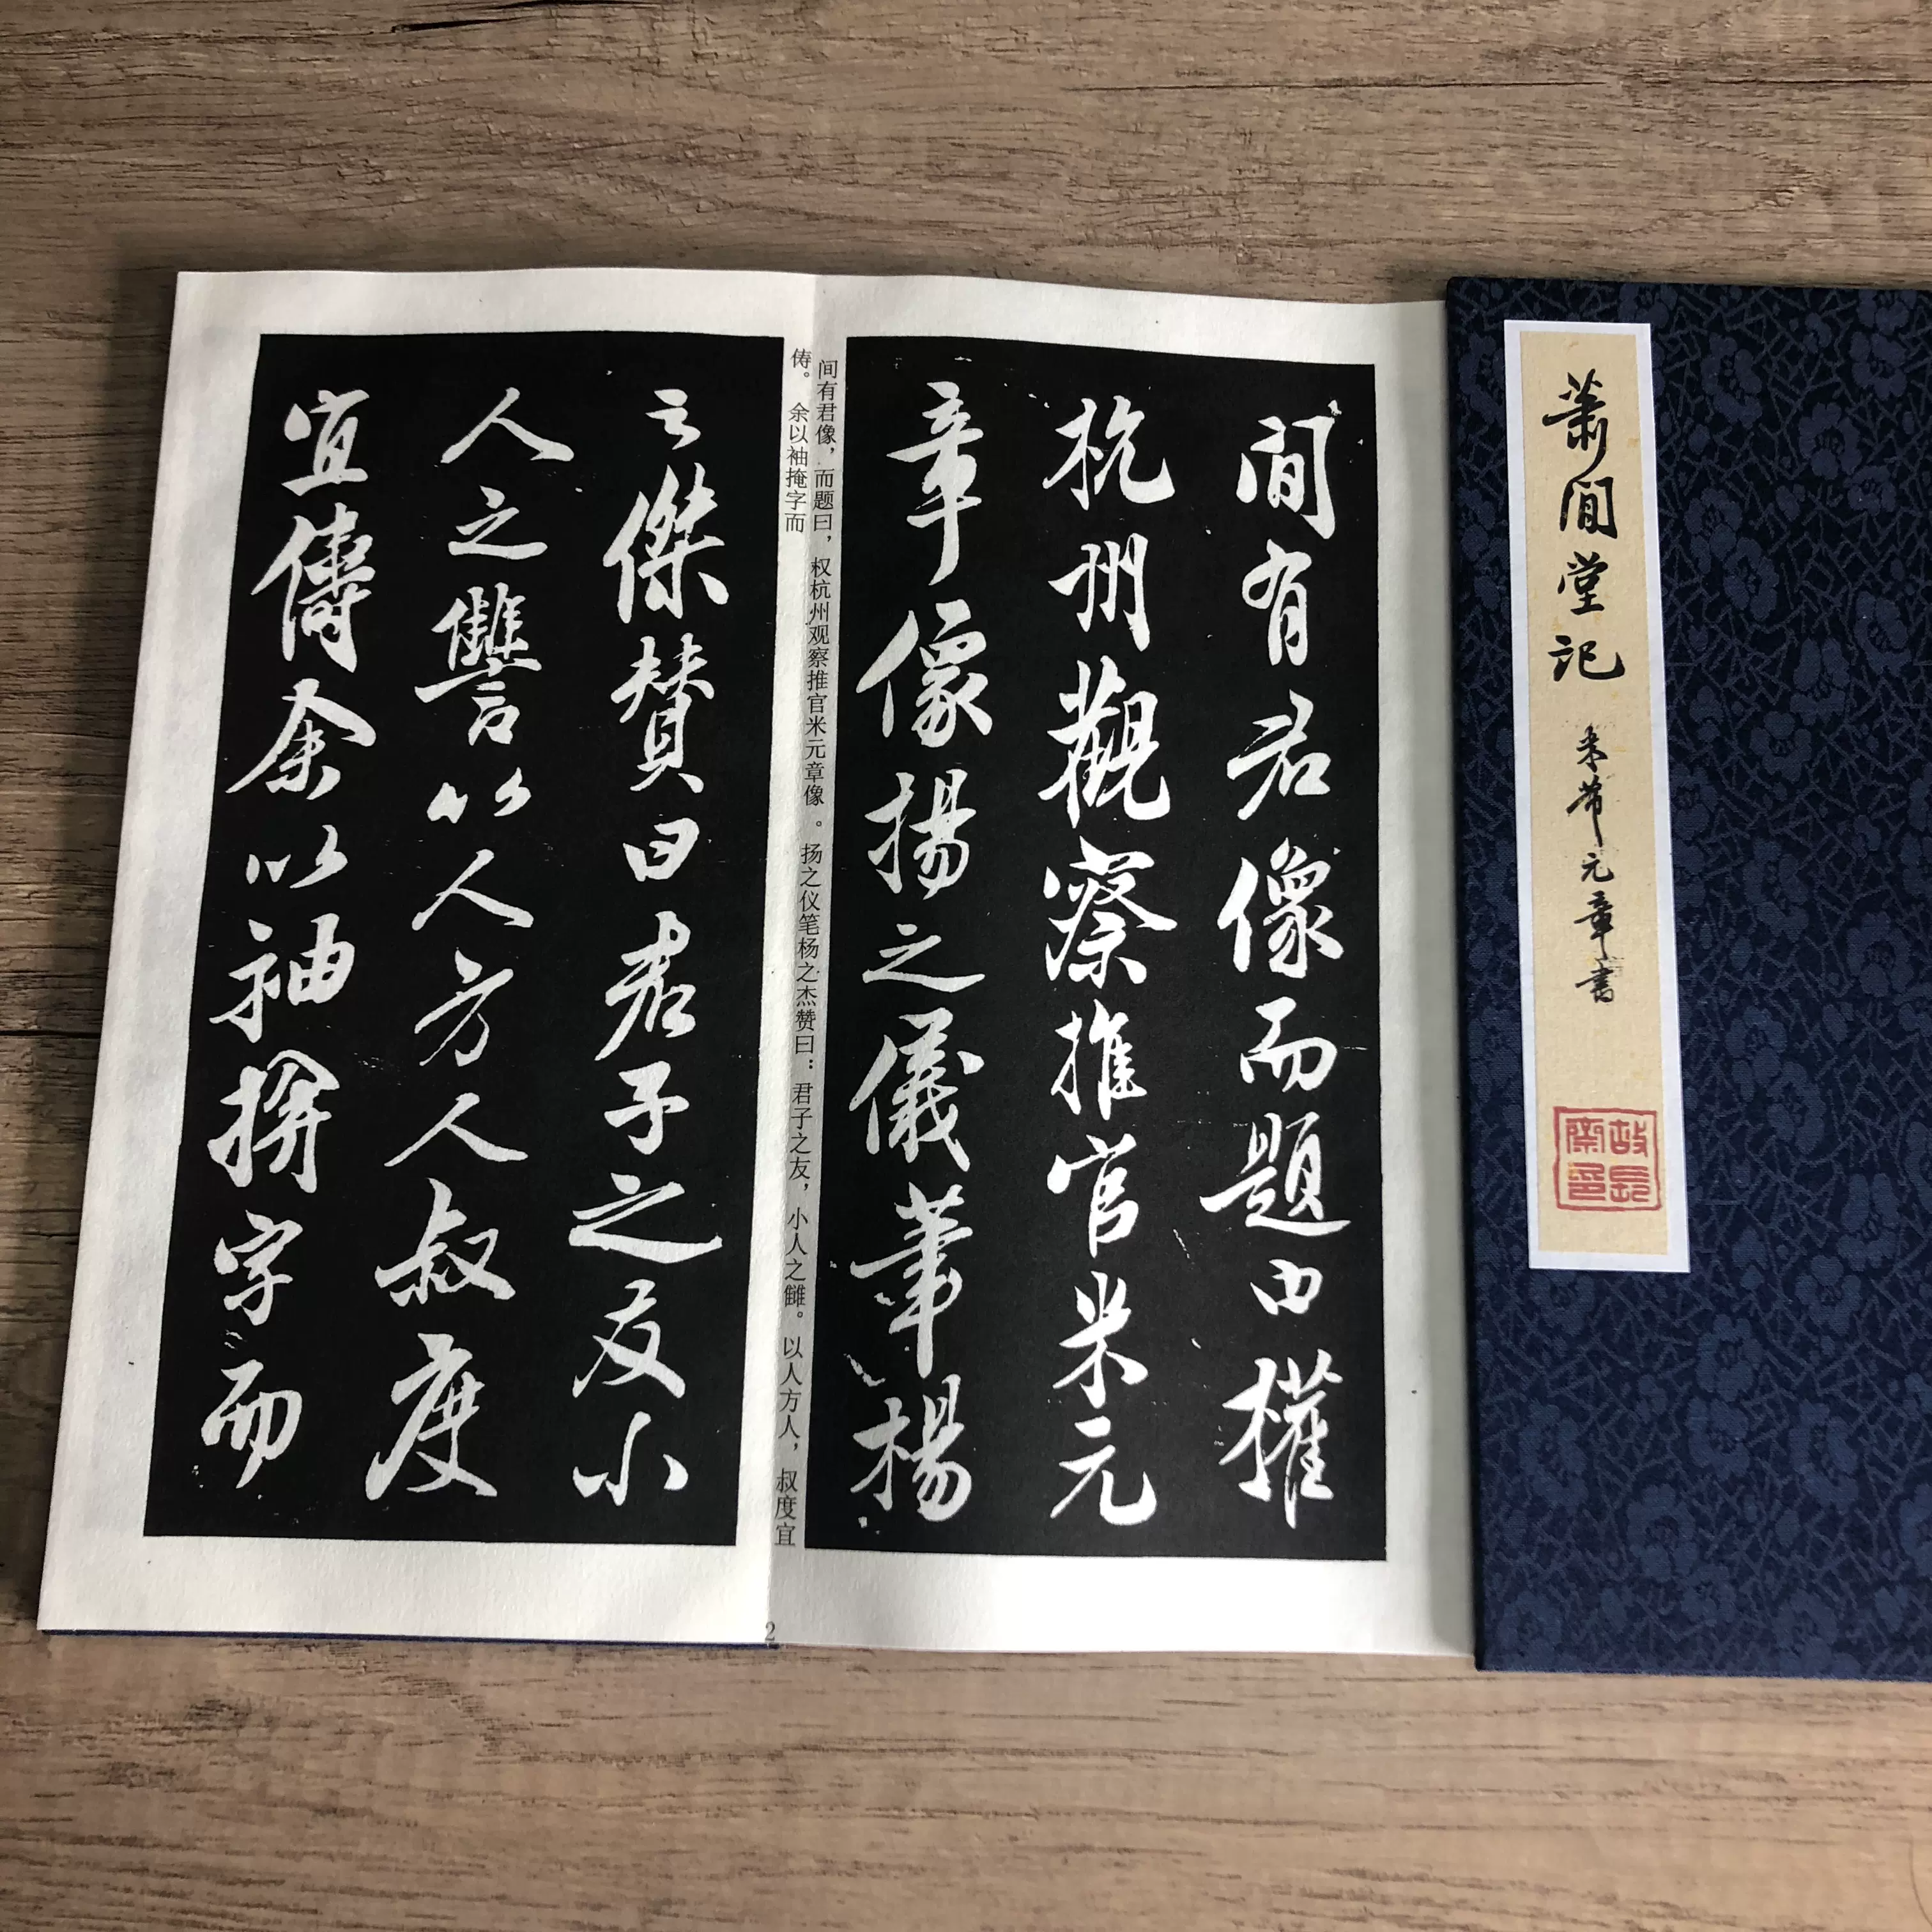 萧閒堂记
米芾元章書
閒有君像而題曰權
杭州觀察推官米元
章像揚之儀筆楊
之傑賛曰君子之友小
人之讐以人方人叔度
宜儔余以袖揜字而
间有君像，而题曰，权杭州观察推官米元章像。扬之仪笔杨之杰赞曰：君子之友，小人之雠。以人方人，叔度宜
俦。余以袖掩字而
2